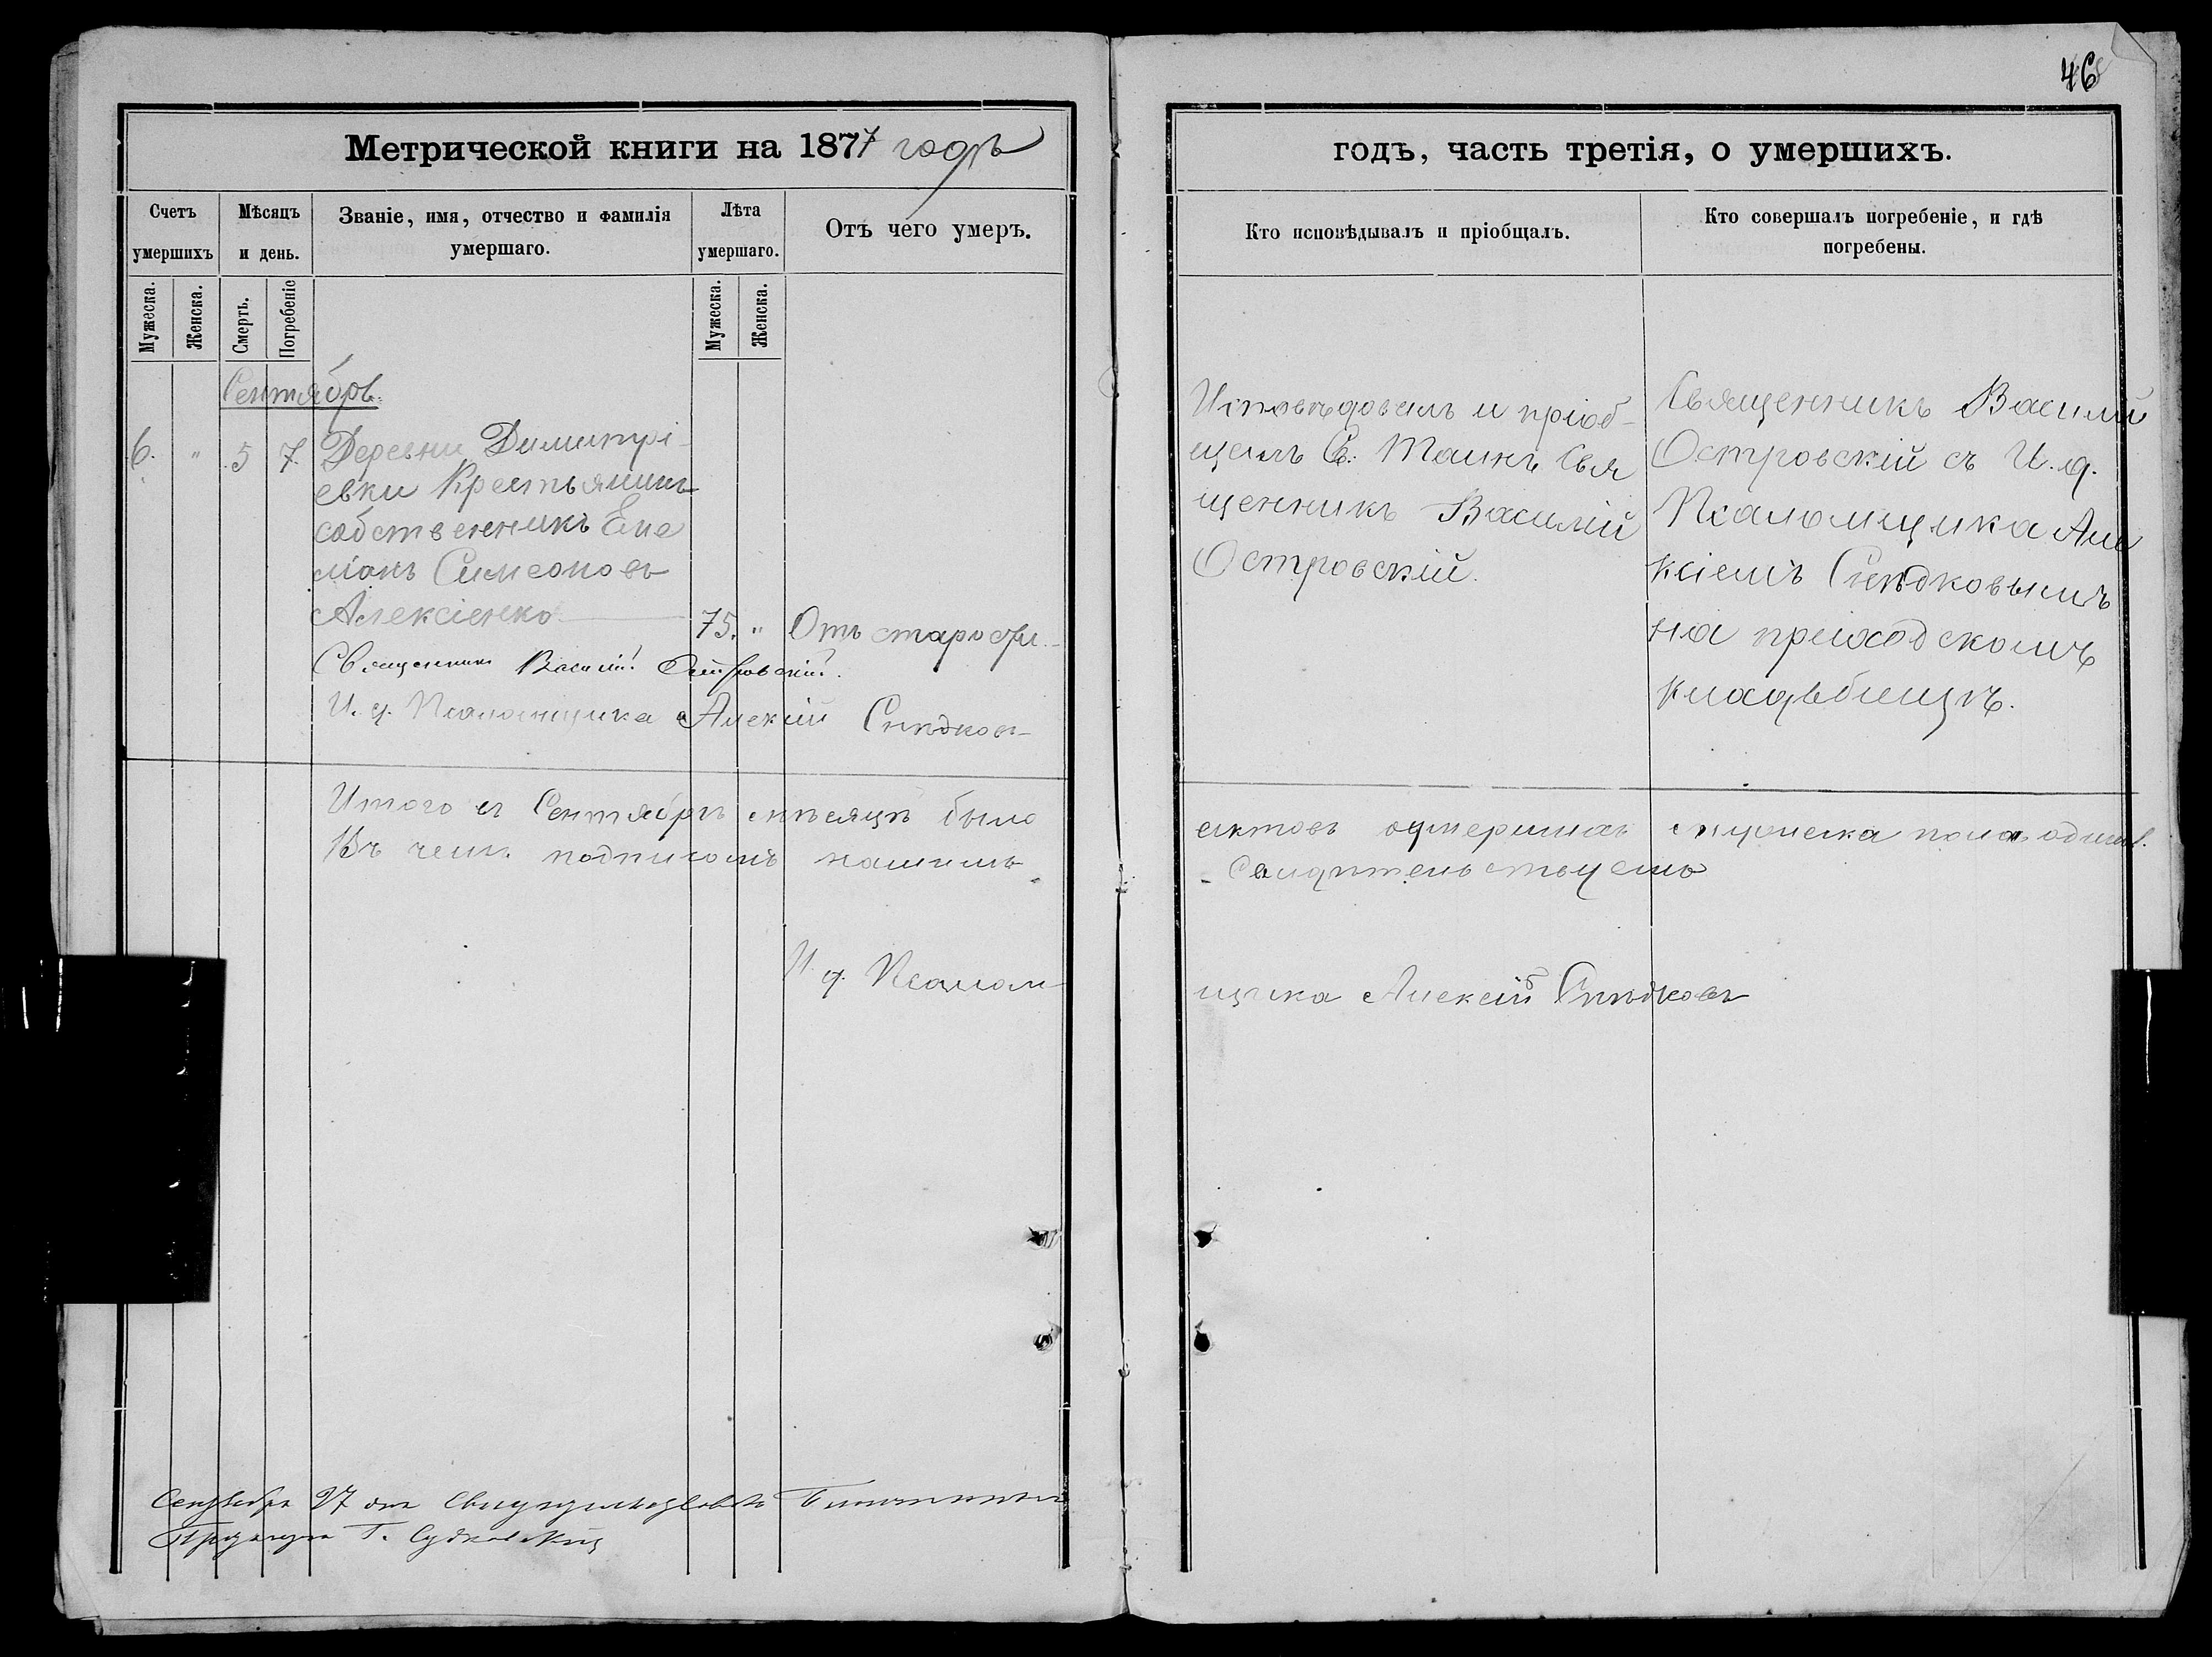 46
Метрической книги на 1877 годъ
годъ, часть третія, о умершихъ.
Счетъ умершихъ
Мѣсяцъ и день.
Званіе, имя, отчество и фамилія умершаго.
Лѣта умершаго.
Отъ чего умеръ.
Кто исповѣдывалъ и пріобщалъ.
Кто совершалъ погребеніе, и гдѣ погребены.
Мужеска.
Женска.
Смерть.
Погребеніе
Мужеска.
Женска.
Сентябрь.
6. " 5 7. Деревни Димитрі-
евки Крестьянинъ
собственникъ Еме
ліанъ Симеоновъ
Алексіенко 75. " Отъ старости.
Священникъ Василій Островскій.
И. д. Псаломщика Алексій
Исповѣдовалъ и пріоб-
щалъ Св. Таинъ Свя
щенникъ Василій
Островскій.
Священникъ Василій
Островскій съ И. д.
Псаломщика Але
ксіемъ
на приходскомъ
кладьбищѣ.
Итого въ Сентябрѣ мѣсяцѣ было
актовъ умершихъ мужеска пола одинъ.
Въ чемъ подписомъ нашимъ
Свидѣтельствуемъ
И. д. Псалом
щика Алексій
Сентября 27 дня